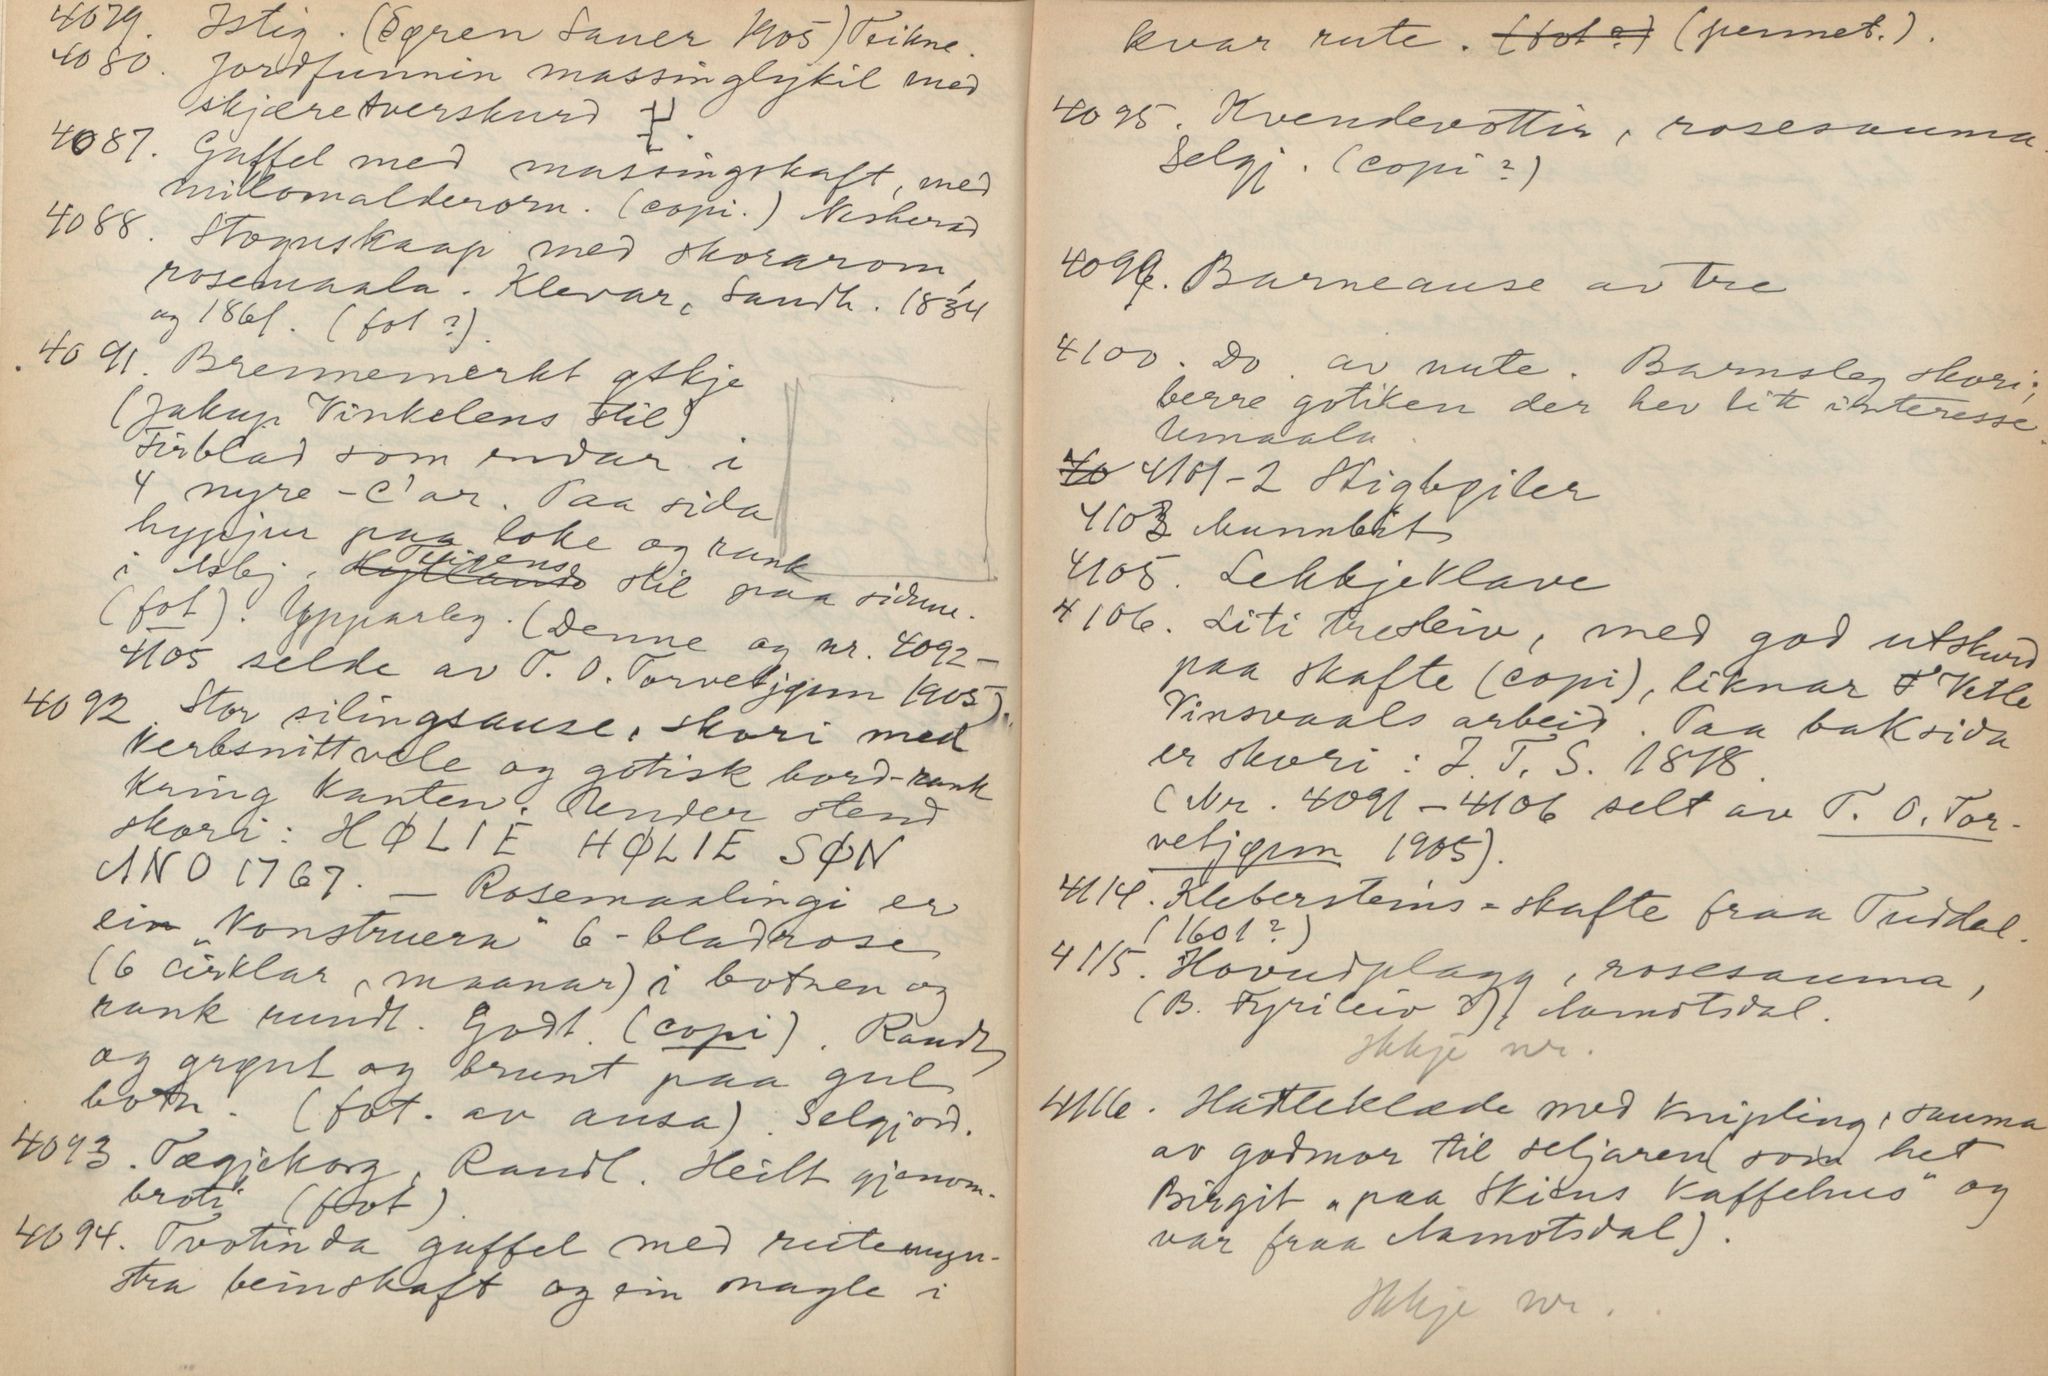 4079. Istig. (Søren Sauer 1905) Teikne.
4080. Jordfunnin massinglykil med
skjæretverskurd
4087. Gaffel med massingskaft, med
millomalderorn. (copi.) Nesherad
4088. Stoguskaap med skorarom,
rosemaala. Klevar, Sandh. 1834
og 1861. (fot?).
4091. Brennemerkt øskje
(Jakup Vinkelens stil)
Firblad som endar i
4 nyre-C'ar. Paa sida
hypjur paa loke og rank
i Tegens stil paa sidune.
(fot). Upparleg. (Denne og nr. 4092-
4105 selde av T. O. Torvetjønn 1905).
4092 Stor silingsause, skori med
Kerbsnittvele og gotisk bord-rank
kring kanten. Under stend
skori: HØLIE HØLIE SØN
ANO 1767. — Rosemaalingi er
ein "Konstruera" 6-bladrose
(6 cirklar, maanar) i botnen og
rank rundt. Godt. (copi). Raudt,
og grønt og brunt paa gul
botn. (fot. av ausa). Selgjord.
4093. Tægjekorg, Raudl. Heilt gjenom-
broti (fot).
4094. Tvotinda gaffel med rutemyn-
stra beinskaft og ein nagle i
kvar rute. (fot?) (pennet.).
4095. Kvendevottir, rosesauma.
Selgj. (copi?)
4099. Barneause av tre
4100. Do. av nute. Barnsleg skori;
berre gotiken der hev litt interesse.
Umaala.
40 4101-2 Stigbøiler
4103 Munnbit
4105. Lekkjeklave
4106. Liti tresleiv, med god utskurd
paa skafte (copi), liknar Vetle
Vinsvaals arbeid. Paa baksida
er skori: J. T. S. 1818.
(Nr. 4091-4106 selt av T. O. Tor-
vetjønn 1905).
4114. Klebersteins-skafte fraa Tuddal.
(1601?)
4115. Hovudplagg, rosesauma,
(B. Fyrileiv?), Aamotsdal.
Ikkje nr.
4116. Hatteklæde med knipling, sauma
av godmor til seljaren (som het
Birgit "paa Skiens Kaffehus" og
var fraa Aamotsdal).
Ikkje nr.